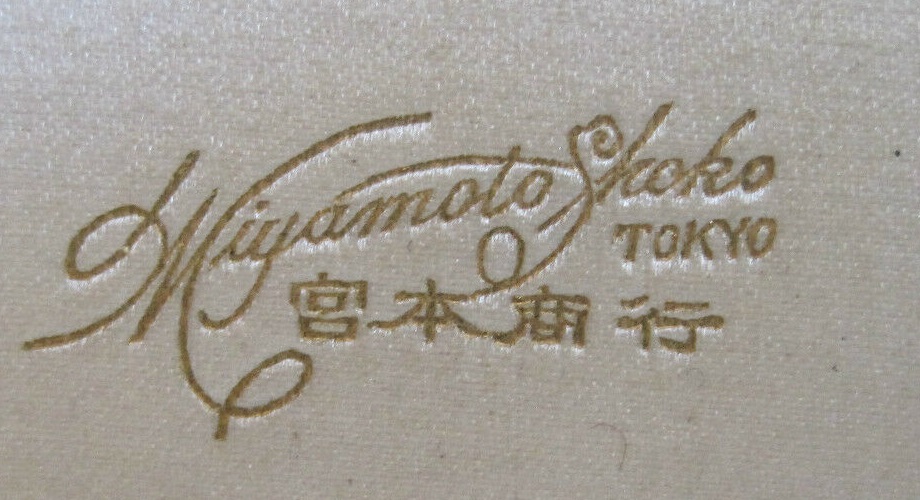 Miyamoto Shoko
TOKYO
宮本商行